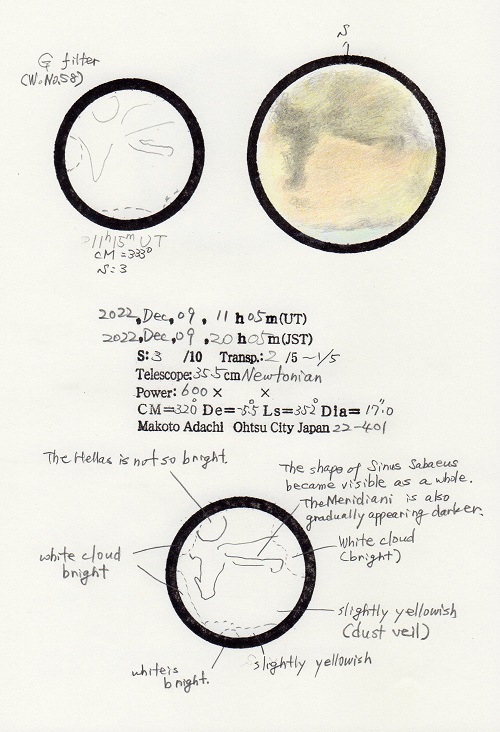 S
G filter
(W.No.58)
11h15mUT
CM=333°
S:3
2022,Dec,09, 11h05m(UT)
2022,Dec,09,20h05m(JST)
S:3 /10 Transp.:2/5~1/5
Telescope:35.5cm Newtonian
Power:600× ×
CM=320° De=-5.5° Ls=352° Dia=17".0
Makoto Adachi Ohtsu City Japan 22-401
The Hellas is not so bright.
The shape of Sinus Sabaeus
became visible as a whole.
The Meridiani is also
gradually appearing darker.
white cloud
bright
White cloud
(bright)
slightly yellowish
(dust veil)
slightly yellowish
white is
bright.